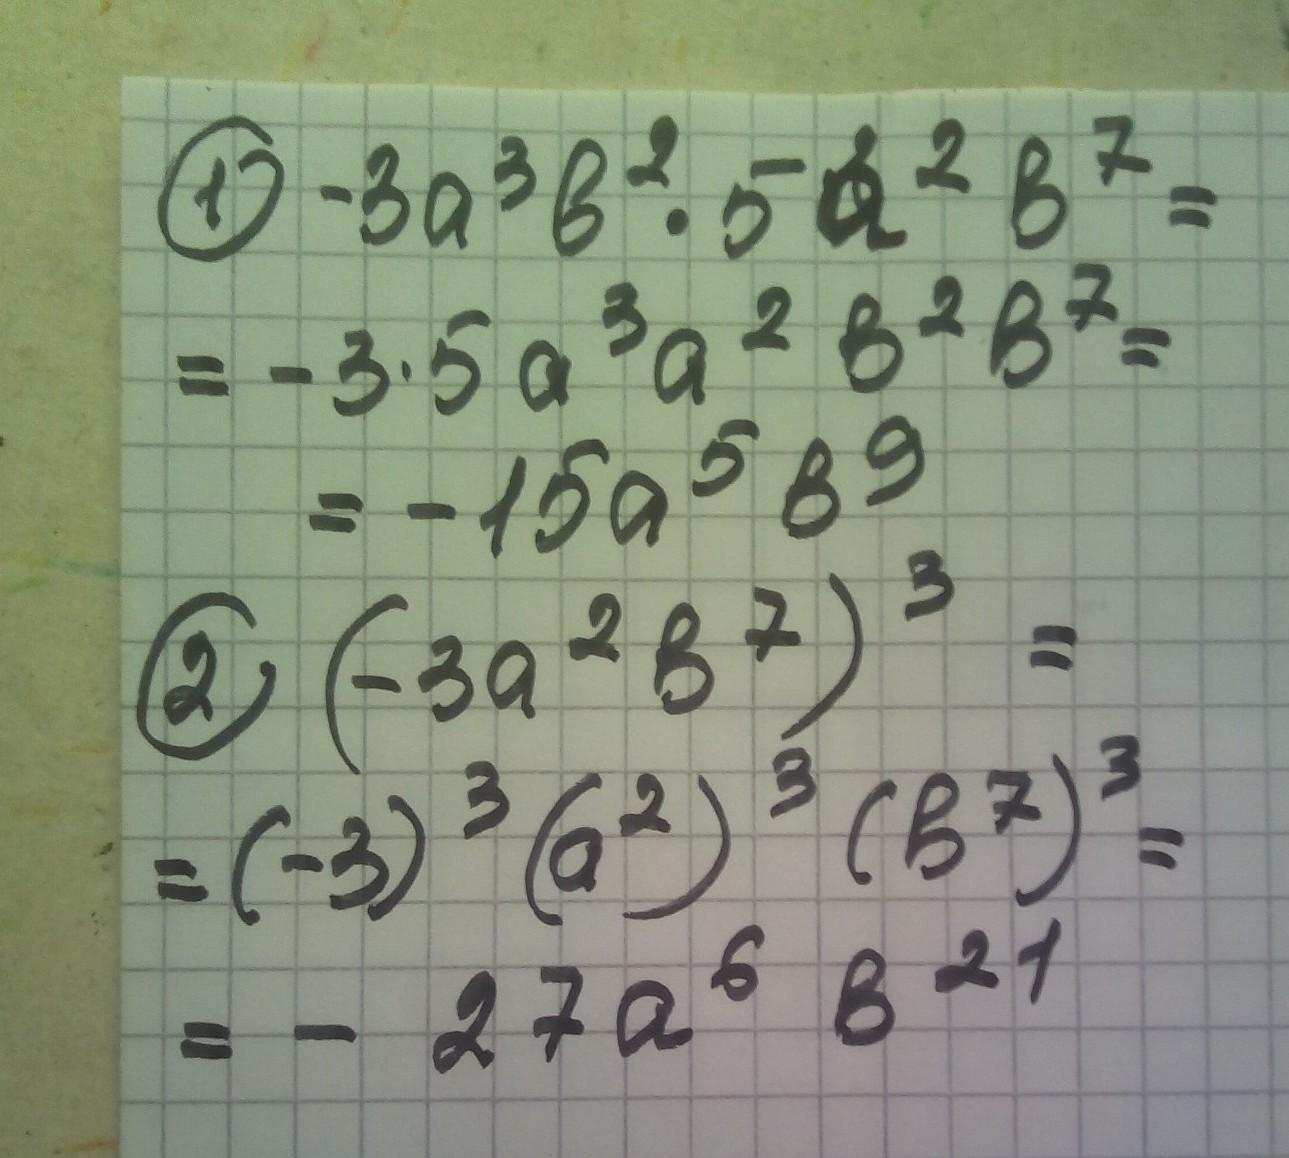 ① -3a³b²·5a²b⁷=
=-3·5a³a²b²b⁷=
=-15a⁵b⁹
② (-3a²b⁷)³ =
=(-3)³(a²)³(b⁷)³=
=-27a⁶b²¹